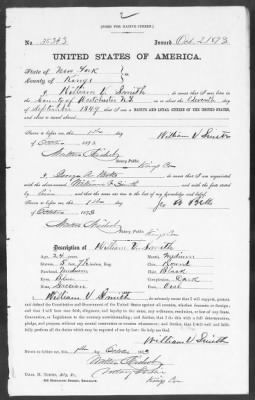 [FORM FOR NATIVE CITIZEN.]
No. 35343 Issued Oct. 2 1873
UNITED STATES OF AMERICA.
State of New York
County of Kings
I, William V. Smith, do swear that I was born in the
County of Westchester N.Y. on the Eleventh day
of September 1849
that I am a NATIVE AND LOYAL CITIZEN OF THE UNITED STATES,
and about to travel abroad.
Sworn to before me, this 1st day William V. Smith
of October 1873
Notary Public
Kings Co
do swear that I am acquainted
with the above-named William V. Smith and with the facts stated
by him and that the same are true to the best of my knowledge and belief.
Sworn to before me, this 1st day
of October 1873
Notary Public
Kings Co
Description of William V. Smith
Age, 24 years
Mouth, Medium
Stature, 5
Chin, Round
Forehead, Medium
Hair, Black
Eyes, Blue
Complexion, Dark
Nose, Grecian
Face, Oval
I, William V. Smith, do solemnly swear that I will support, protect,
and defend the Constitution and Government of the United States against all enemies, whether domestic or foreign;
and that I will bear true faith, allegiance, and loyalty to the same, any ordinance, resolution, or law of any State,
Convention, or Legislature to the contrary notwithstanding; and further, that I do this with a full determination,
pledge, and purpose, without any mental reservation or evasion whatsoever; and further, that I will well and faith-
fully perform all the duties which may be required of me by law: So help me God.
William V. Smith
Sworn to before me, this 1st October 1873
Notary Public
Kings Co